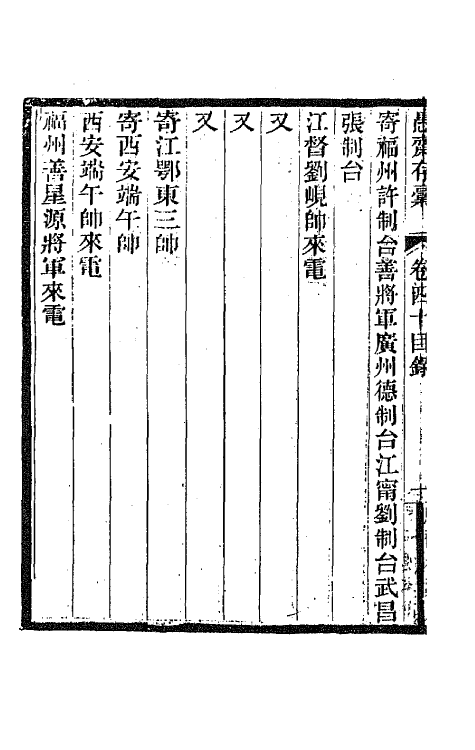 愚齋存藁 卷四十目錄
寄福州許制台善將軍廣州德制台江甯劉制台武昌
張制台
江督劉峴帥來電
又
又
又
寄江鄂東三帥
寄西安端午帥
西安端午帥來電
福州善星源將軍來電